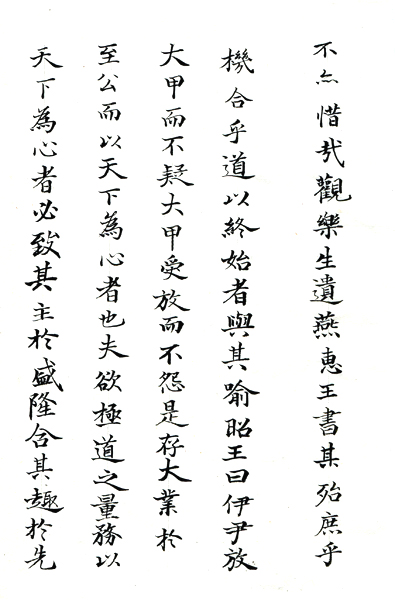 不亦惜哉觀樂生遺燕惠王書其殆庶乎
機合乎道以終始者與其喻昭王曰伊尹放
大甲而不疑大甲受放而不怨是存大業於
至公而以天下為心者也夫欲極道之量務以
天下為心者必致其主於盛隆合其趣於先